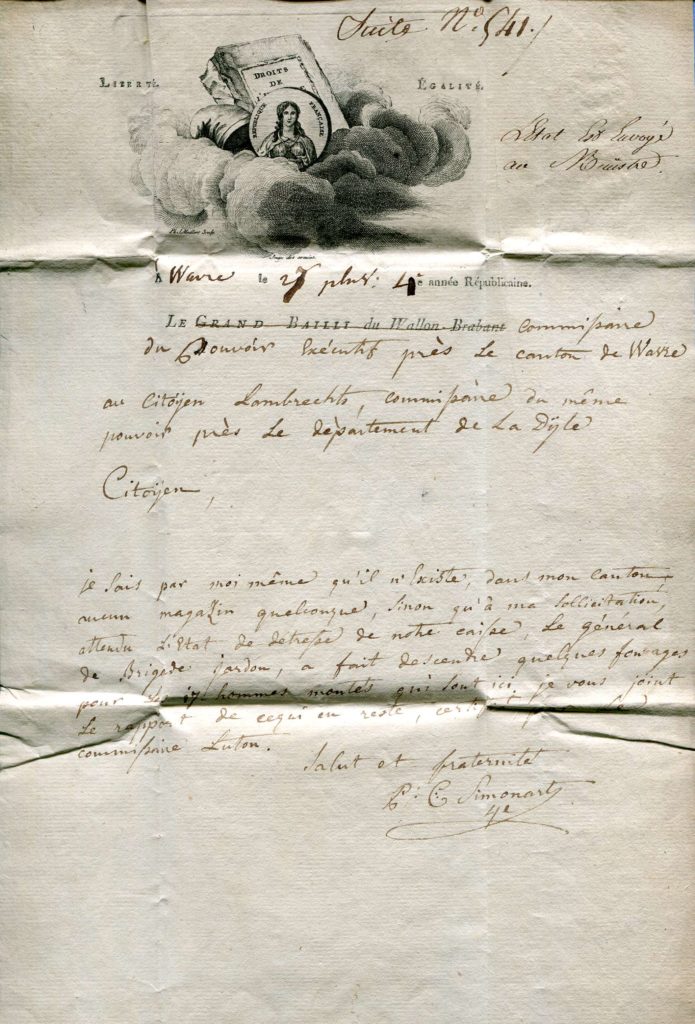 Suite N.º 541.
LIBERTÉ.
ÉGALITÉ.
DROITS
DE
REPUBLIQUE FRANÇAISE
L'Etat Est Envoyé
au
À Wavre le pluv: 4e année Républicaine.
LE GRAND BAILLI du Wallon Brabant commissaire
du Pouvoir Exécutif près Le canton de Wavre
au Citoÿen Lambrechts, commissaire du même
pouvoir près Le département de La Dÿle
Citoÿen,
je sais par moi même qu'il n'Existe, dans mon canton
aucun magazin quelconque, sinon qu'à ma sollicitation,
attendu L'Etat de détresse de notre caisse, Le général
de Brigade jardon, a fait descendre quelques fourages
pour les 17 hommes montés qui sont ici. je vous joint
Le rapport de cequi en reste, par Le
commissaire Luton.
Salut et fraternité
P: C: Simonart